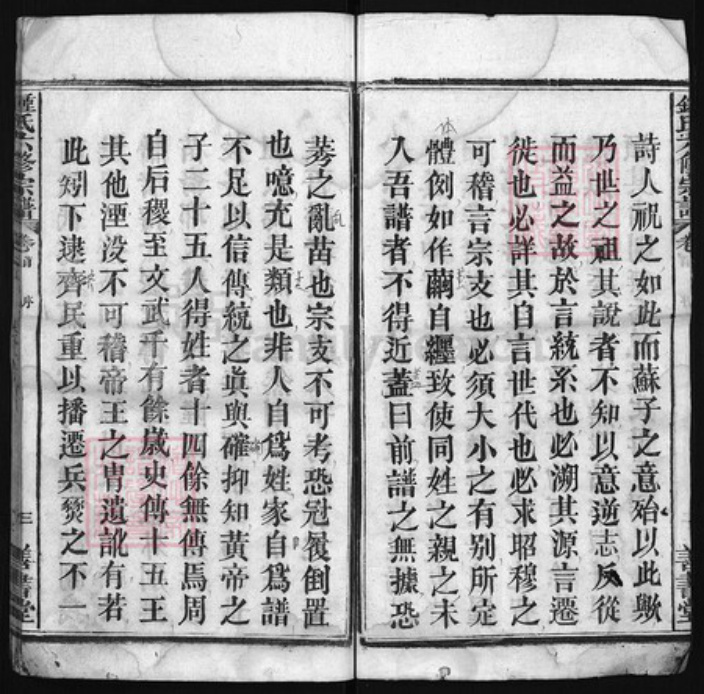 詩人祝之如此而蘇子之意始以此歟
乃世之祖其說者不知以意逆志反從
而益之故於言統系也必溯其源言遷
徙也必詳其自言世代也必求昭穆之
可稽言宗支也必須大小之有别所定
體例如作繭自纒致使同姓之親之未
入吾譜者不得近蓋曰前譜之無據恐
莠之亂苗也宗支不可考恐冠履倒置
也噫充是類也非人自爲姓家自爲譜
不足以信傳統之眞與確抑知黃帝之
子二十五人得姓者十四餘無傳焉周
自后稷至文武千有餘歲史傳十五王
其他湮没不可稽帝王之胄遺訛有若
此矧下逮齊民重以播遷兵燹之不一
鍾氏六修宗譜
卷首
序
三
善書堂